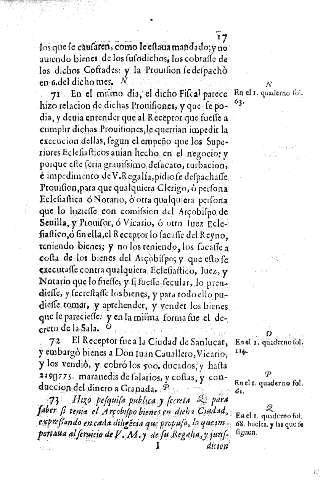 17
los que se causaren, como le estaua mandado; y no
auiendo bienes de los susodichos, los cobrasse de
los dichos Costades: y la Prouision se despachò
en 6. del dicho mes. N
71 En el mismo dia, el dicho Fiscal parece
hizo relacion de dichas Prouisiones, y que se po-
dia, y deuia entender que al Receptor que fuesse a
cumplir dichas Prouisiones, le querrian impedir la
execucion dellas, segun el empeño que los Supe-
riores Eclesiasticos auian hecho en el negocio; y
porque este seria grauissimo desacato, turbacion,
è impedimento de V. Regalia, pidiò se despachasse
Prouision, para que qualquiera Clerigo, ò persona
Eclesiastica ò Notario, ò otra qualquiera persona
que lo hiziesse con comision del Arçobispo de
Seuilla, y Prouisor, ò Vicario, ò otro Iuez Ecle-
siastico, ò sin ella, el Receptor lo sacasse del Reyno,
teniendo bienes; y no los teniendo, los sacasse a
costa de los bienes del Arçobispo; y que esto se
executasse contra qualquiera Eclesiastico, Iuez, y
Notario que lo fuesse; y si fuesse secular, lo pren-
diesse, y secrestasse los bienes, y para todo ello pu-
diesse tomar, y aprehender, y vender los bienes
que le pareciesse: y en la misma forma fue el de-
creto de la Sala. O
72 El Receptor fue a la Ciudad de Sanlucar,
y embargò bienes a Don Iuan Cauallero, Vicario,
y los vendiò, y cobrò los 500. ducados, y hasta
maranedis de salarios, y costas, y con-
duccion del dinero a Granada. P
73 Hizo pesquisa publica y secreta Q para
saber si tenia el Arçobispo bienes en dicha Ciudad,
expressando en cada diligẽcia que propuso, la que im-
portaua al seruicio de V. M. y de su Regalia, y juris-
I dicion
N
En el 1. quaderno fol.
63.
O
En el 1. quaderno fol.
114.
P
En el 1. quaderno fol.
Q
En el 1. quaderno fol.
68. buelta, y las que se
siguen.